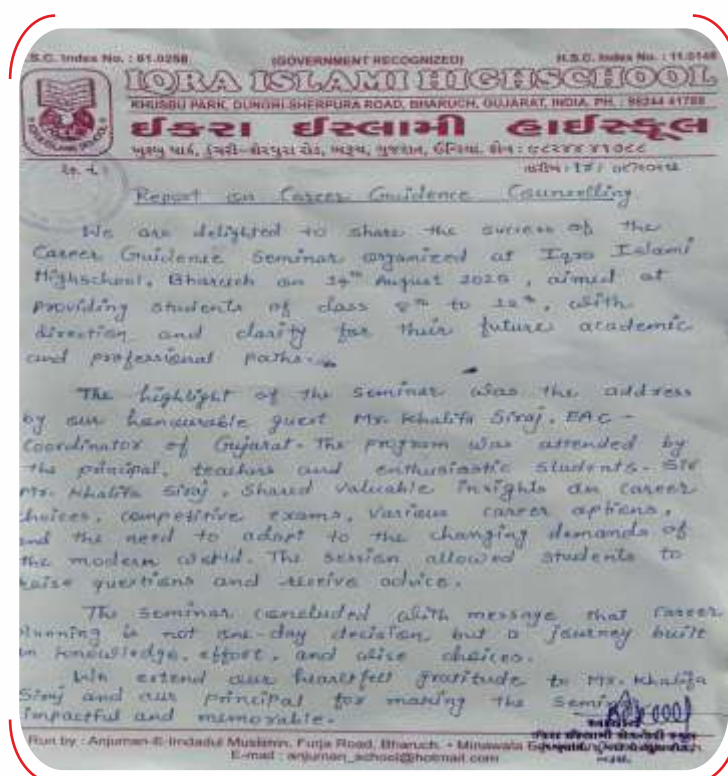 S.S.C. Index No. : 61.0258 (GOVERNMENT RECOGNIZED) H.S.C. Index No. : 11.0148
IQRA ISLAMI HIGHSCHOOL
KHUSBU PARK, DUNGRI-SHERPURA ROAD, BHARUCH, GUJARAT, INDIA. PH. : 98244 41788
ઈકરા ઈસ્લામી હાઈસ્કૂલ
ખુશ્બુ પાર્ક, ડુંગરી-શેરપુરા રોડ, ભરૂચ, ગુજરાત, ઈન્ડિયા. ફોન :
તારીખ :
Report on Career Guidence Counselling
We are delighted to share the success of the
Career Guidence Seminar organized at Iqra Islami
Highschool, Bharuch on 14th August 2025, aimed at
providing students of class 9th to 12th, with
direction and clarity for their future academic
and professional paths.
The highlight of the seminar was the address
by our honourable guest Mr. Khalifa Siraj, EAC -
Coordinator of Gujarat. The program was attended by
the principal, teachers and enthusiastic students. Sir
Mr. Khalifa Siraj, Shared valuable insights on career
choices, competitive exams, various career options,
and the need to adapt to the changing demands of
the modern world. The session allowed students to
raise questions and receive advice.
The seminar concluded with message that career
planning is not one-day decision but a journey built
on knowledge, effort, and wise choices.
We extend our heartfelt gratitude to Mr. Khalifa
Siraj and our principal for making the Seminar
impactful and memorable.
આચાર્ય
Run by : Anjuman-E-Imdadul Muslemin, Furja Road, Bharuch. • Minawala
E-mail : anjuman_school@hotmail.com